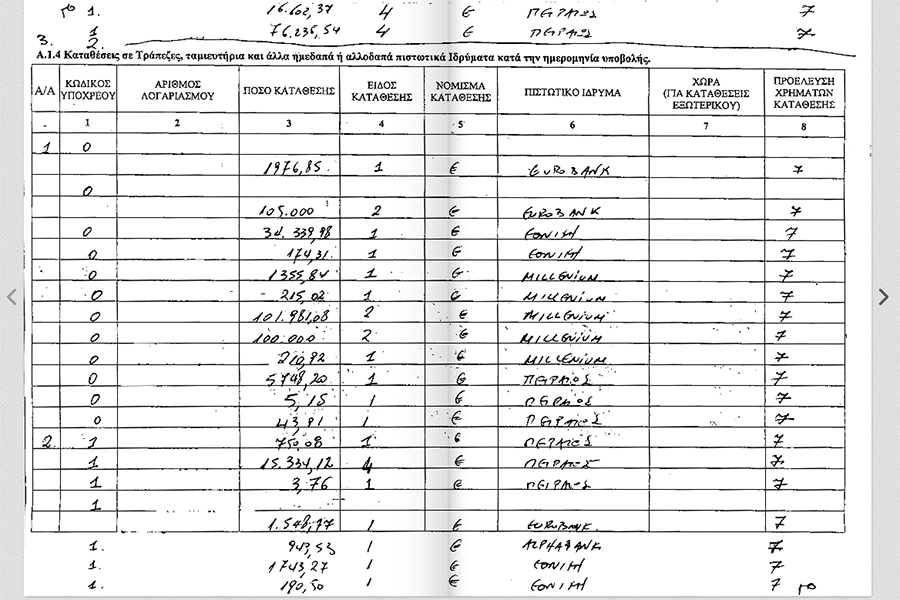 1. 16.602,37 4 € ΠΕΙΡΑΙΩΣ 7
1 76.235,54 4 € ΠΕΙΡΑΙΩΣ 7
3. 2.
Α.1.4 Καταθέσεις σε Τράπεζες, ταμιευτήρια και άλλα ημεδαπά ή αλλοδαπά πιστωτικά Ιδρύματα κατά την ημερομηνία υποβολής.
Α/Α ΚΩΔΙΚΟΣ ΥΠΟΧΡΕΟΥ ΑΡΙΘΜΟΣ ΛΟΓΑΡΙΑΣΜΟΥ ΠΟΣΟ ΚΑΤΑΘΕΣΗΣ ΕΙΔΟΣ ΚΑΤΑΘΕΣΗΣ ΝΟΜΙΣΜΑ ΚΑΤΑΘΕΣΗΣ ΠΙΣΤΩΤΙΚΟ ΙΔΡΥΜΑ ΧΩΡΑ (ΓΙΑ ΚΑΤΑΘΕΣΕΙΣ ΕΞΩΤΕΡΙΚΟΥ) ΠΡΟΕΛΕΥΣΗ ΧΡΗΜΑΤΩΝ ΚΑΤΑΘΕΣΗΣ
1 2 3 4 5 6 7 8
1 0
1976,85 1 € EUROBANK 7
0
105.000 2 € EUROBANK 7
0 34.339,98 1 € ΕΘΝΙΚΗ 7
0 174,31 1 € ΕΘΝΙΚΗ 7
0 1355,84 1 € MILLENIUM 7
0 215,02 1 € MILLENIUM 7
0 101.981,08 2 € MILLENIUM 7
0 100.000 2 € MILLENIUM 7
0 210,92 1 € MILLENIUM 7
0 5748,20 1 € ΠΕΙΡΑΙΩΣ 7
0 5,15 1 € ΠΕΙΡΑΙΩΣ 7
0 43,91 1 € ΠΕΙΡΑΙΩΣ 7
2. 1 750,08 1 € ΠΕΙΡΑΙΩΣ 7
1 15.334,12 4 € ΠΕΙΡΑΙΩΣ 7
1 3,76 1 € ΠΕΙΡΑΙΩΣ 7
1
1.548,77 1 € EUROBANK 7
1. 949,53 1 € ALPHABANK 7
1. 1743,27 1 € ΕΘΝΙΚΗ 7
1. 190,50 1 € ΕΘΝΙΚΗ 7